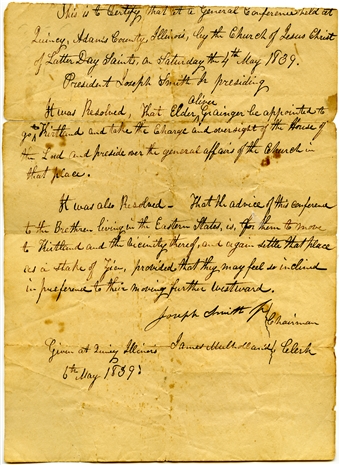 This is to Certify that at a General Conference held at
Quincy, Adams County, Illinois, by the Church of Jesus Christ
of Latter Day Saints, on Saturday the 4th May 1839.
President Joseph Smith Jr presiding
Oliver
It was Resolved, That Elder, Grainger be appointed to
go to Kirtland and take the Charge and oversight of the House of
the Lord and preside over the general affairs of the Church in
that place.
It was also Resolved— That the advice of this conference
to the Brethren living in the Eastern States, is, for them to move
to Kirtland and the vicinity thereof, and again settle that place
as a stake of Zion, provided that they may feel so inclined
in preference to their moving further Westward.
Joseph Smith Jr
Chairman
Given at Quincy Illinois James Mulholland Clerk
6th May 1839